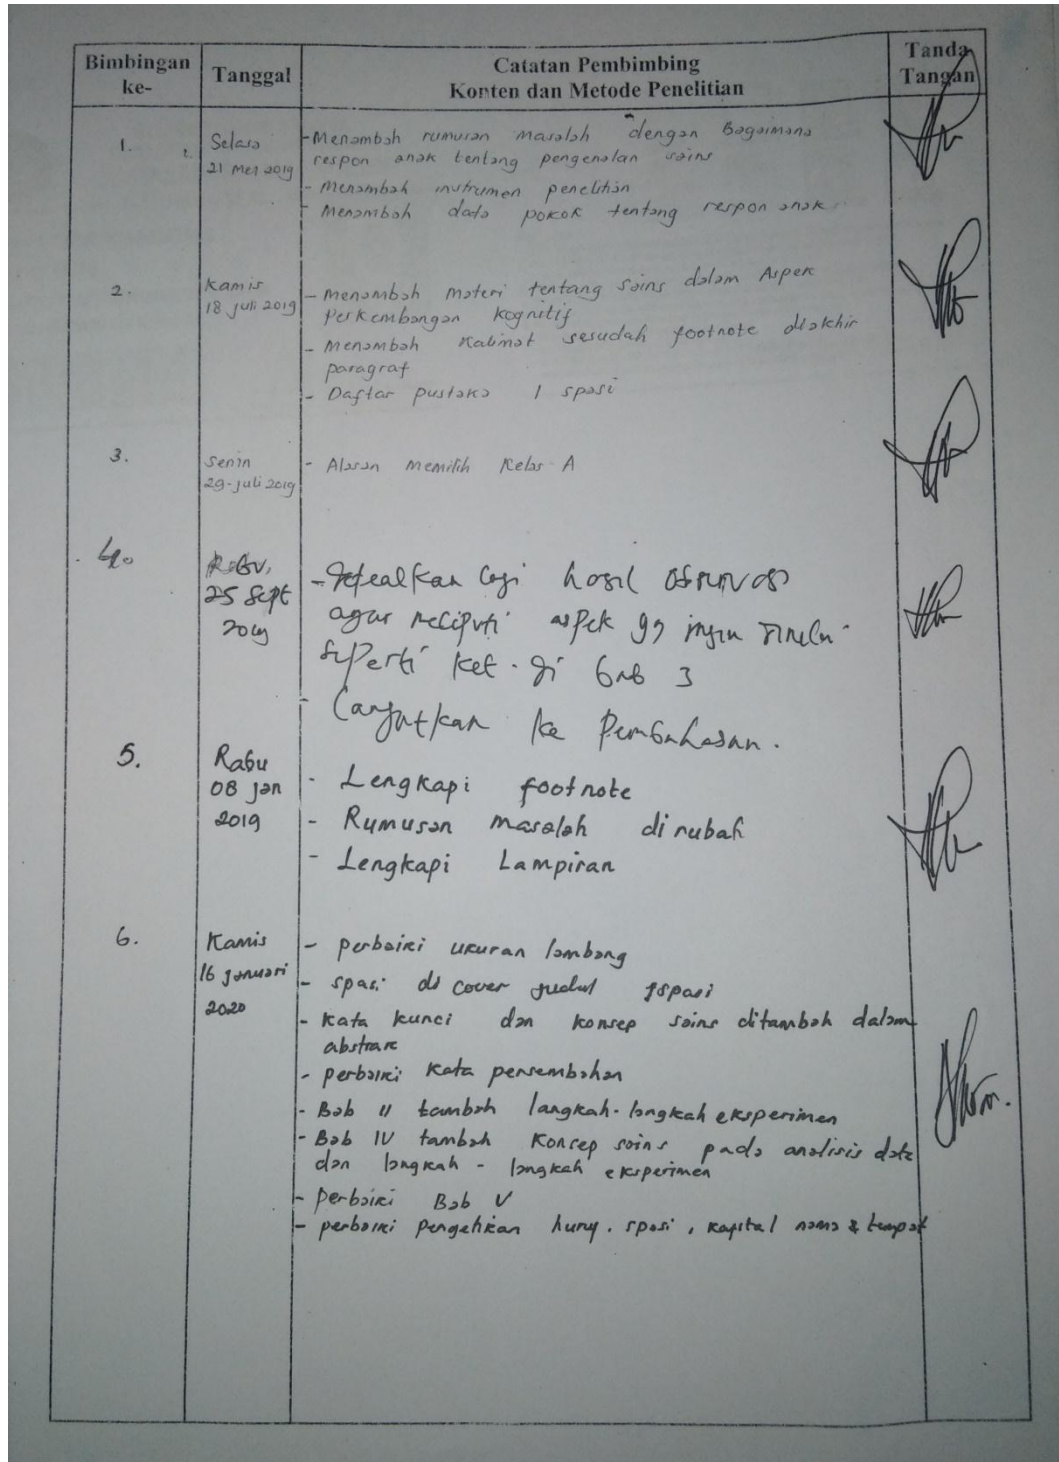 Bimbingan ke-
Tanggal
Catatan Pembimbing
Konten dan Metode Penelitian
Tanda Tangan
1.
Selasa
21 Mei 2019
- Menambah rumusan masalah dengan Bagaimana
respon anak tentang pengenalan sains
- Menambah instrumen penelitian
- Menambah data pokok tentang respon anak
2.
Kamis
18 Juli 2019
- Menambah materi tentang sains dalam Aspek
Perkembangan Kognitif
- Menambah Kalimat sesudah footnote diakhir
paragraf
- Daftar pustaka 1 spasi
3.
Senin
29-juli 2019
- Alasan Memilih Kelas A
4.
Rabu,
25 Sept
2019
- lagi hasil observasi
agar meliputi aspek yg ingin
seperti ket. di bab 3
- Lanjutkan ke Pembahasan.
5.
Rabu
08 jan
2019
- Lengkapi footnote
- Rumusan masalah dirubah
- Lengkapi Lampiran
6.
Kamis
16 januari
2020
- perbaiki ukuran lambang
- spasi di cover judul 1spasi
- Kata kunci dan konsep sains ditambah dalam
abstrak
- perbaiki kata persembahan
- Bab II tambah langkah-langkah eksperimen
- Bab IV tambah Konsep sains pada analisis data
dan langkah-langkah eksperimen
- Perbaiki Bab V
- perbaiki pengetikan huruf. spasi, kapital nama & tempat